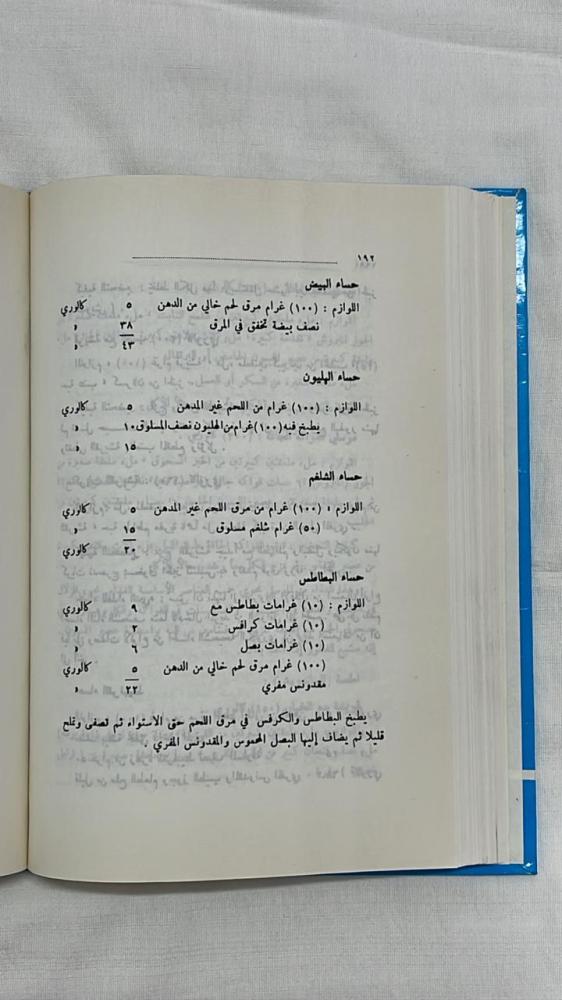 ١٩٢
حساء البيض
اللوازم : (١٠٠) غرام مرق لحم خالي من الدهن ٥ كالوري
نصف بيضة تخفق في المرق ٣٨ »
٤٣ »
حساء الهليون
اللوازم : (١٠٠) غرام من اللحم غير المدهن ٥ كالوري
يطبخ فيه (١٠٠) غرام من الهليون نصف المسلوق ١٠ »
١٥ »
حساء الشلغم
اللوازم : (١٠٠) غرام من مرق اللحم غير المدهن ٥ كالوري
(٥٠) غرام شلغم مسلوق ١٥ »
٢٠ كالوري
حساء البطاطس
اللوازم : (١٠) غرامات بطاطس مع ٩ كالوري
(١٠) غرامات كرافس ٢ »
(١٠) غرامات بصل ٦ »
(١٠٠) غرام مرق لحم خالي من الدهن ٥ كالوري
مقدونس مفري ٢٢ »
يطبخ البطاطس والكرفس في مرق اللحم حتى الاستواء ثم تصفى وتملح
قليلا ثم يضاف إليها البصل المحموس والمقدونس المفري .